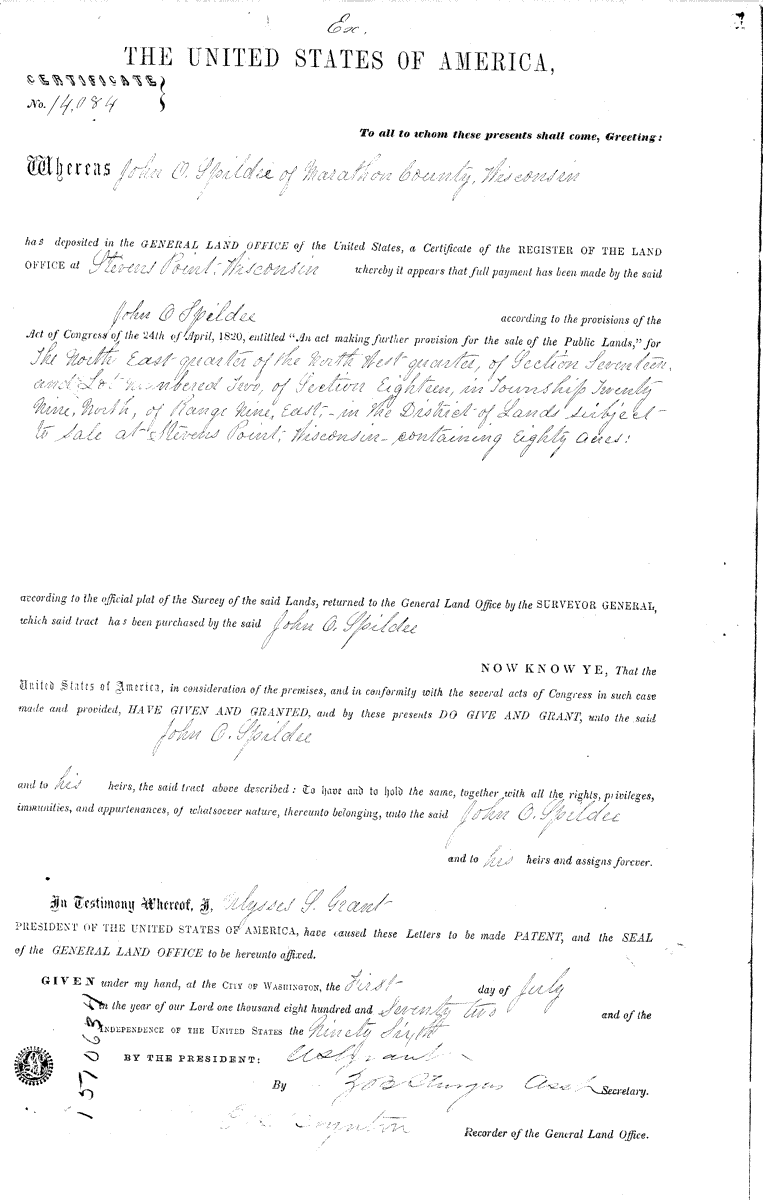 Ex.
THE UNITED STATES OF AMERICA,
CERTIFICATE
No. 14,084
To all to whom these presents shall come, Greeting:
Whereas John O. Spildie of Marathon County, Wisconsin
has deposited in the GENERAL LAND OFFICE of the United States, a Certificate of the REGISTER OF THE LAND
OFFICE at Stevens Point, Wisconsin whereby it appears that full payment has been made by the said
John O Spildee according to the provisions of the
Act of Congress of the 24th of April, 1820, entitled "An act making further provision for the sale of the Public Lands," for
The North East quarter of the North West quarter, of Section Seventeen,
and Lot numbered Two, of Section Eighteen, in Township Twenty
Nine, North, of Range Nine, East,- in the District of Lands subject
to Sale at Stevens Point, Wisconsin- containing Eighty Acres:
according to the official plat of the Survey of the said Lands, returned to the General Land Office by the SURVEYOR GENERAL,
which said tract has been purchased by the said John O. Spildee
NOW KNOW YE, That the
United States of America, in consideration of the premises, and in conformity with the several acts of Congress in such case
made and provided, HAVE GIVEN AND GRANTED, and by these presents DO GIVE AND GRANT, unto the said
John O. Spildee
and to his heirs, the said tract above described: To have and to hold the same, together with all the rights, privileges,
immunities, and appurtenances, of whatsoever nature, thereunto belonging, unto the said John O. Spildee
and to his heirs and assigns forever.
In Testimony Whereof, I, Ulysses S. Grant
PRESIDENT OF THE UNITED STATES OF AMERICA, have caused these Letters to be made PATENT, and the SEAL
of the GENERAL LAND OFFICE to be hereunto affixed.
GIVEN under my hand, at the CITY OF WASHINGTON, the First day of July
in the year of our Lord one thousand eight hundred and Seventy two and of the
INDEPENDENCE OF THE UNITED STATES the Ninety Sixth
BY THE PRESIDENT: U S Grant
By Asst Secretary.
Recorder of the General Land Office.